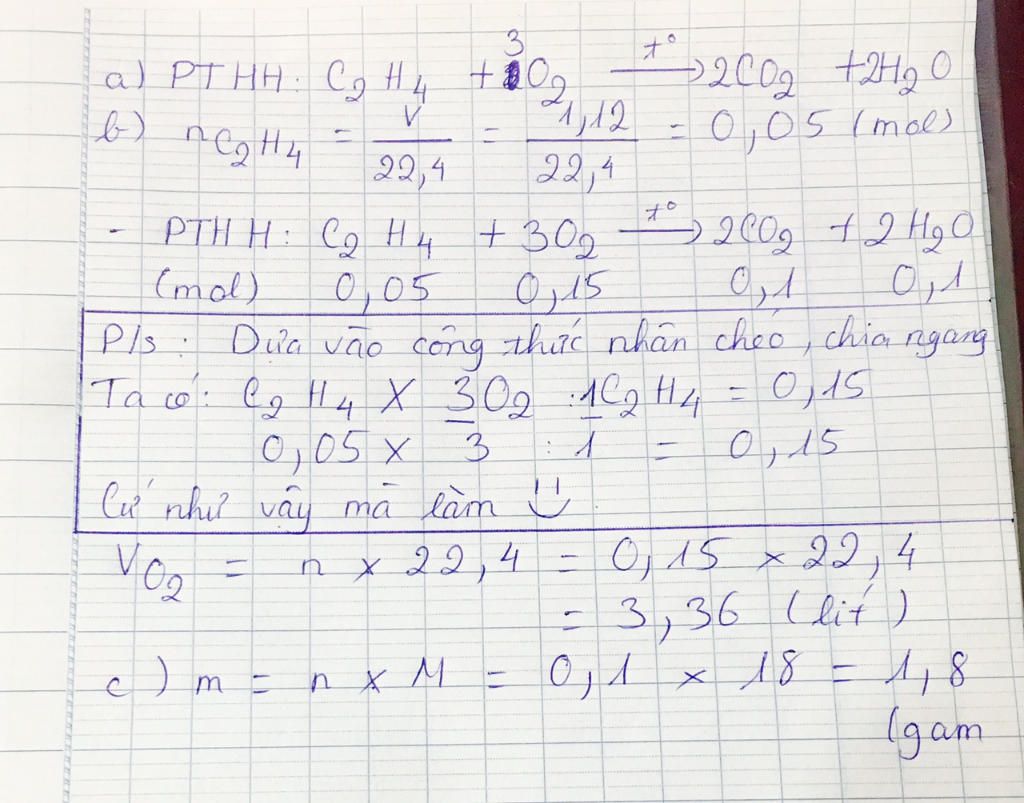 a) PTHH: C₂H₄ + 3O₂ —t°→ 2CO₂ + 2H₂O
b) nC₂H₄ = V/22,4 = 1,12/22,4 = 0,05 (mol)
- PTHH: C₂H₄ + 3O₂ —t°→ 2CO₂ + 2H₂O
(mol) 0,05 0,15 0,1 0,1
P/s: Dựa vào công thức nhân chéo, chia ngang
Ta có: C₂H₄ x 3O₂ : 1C₂H₄ = 0,15
0,05 x 3 : 1 = 0,15
Cứ như vậy mà làm
VO₂ = n x 22,4 = 0,15 x 22,4
= 3,36 (lít)
c) m = n x M = 0,1 x 18 = 1,8
(gam